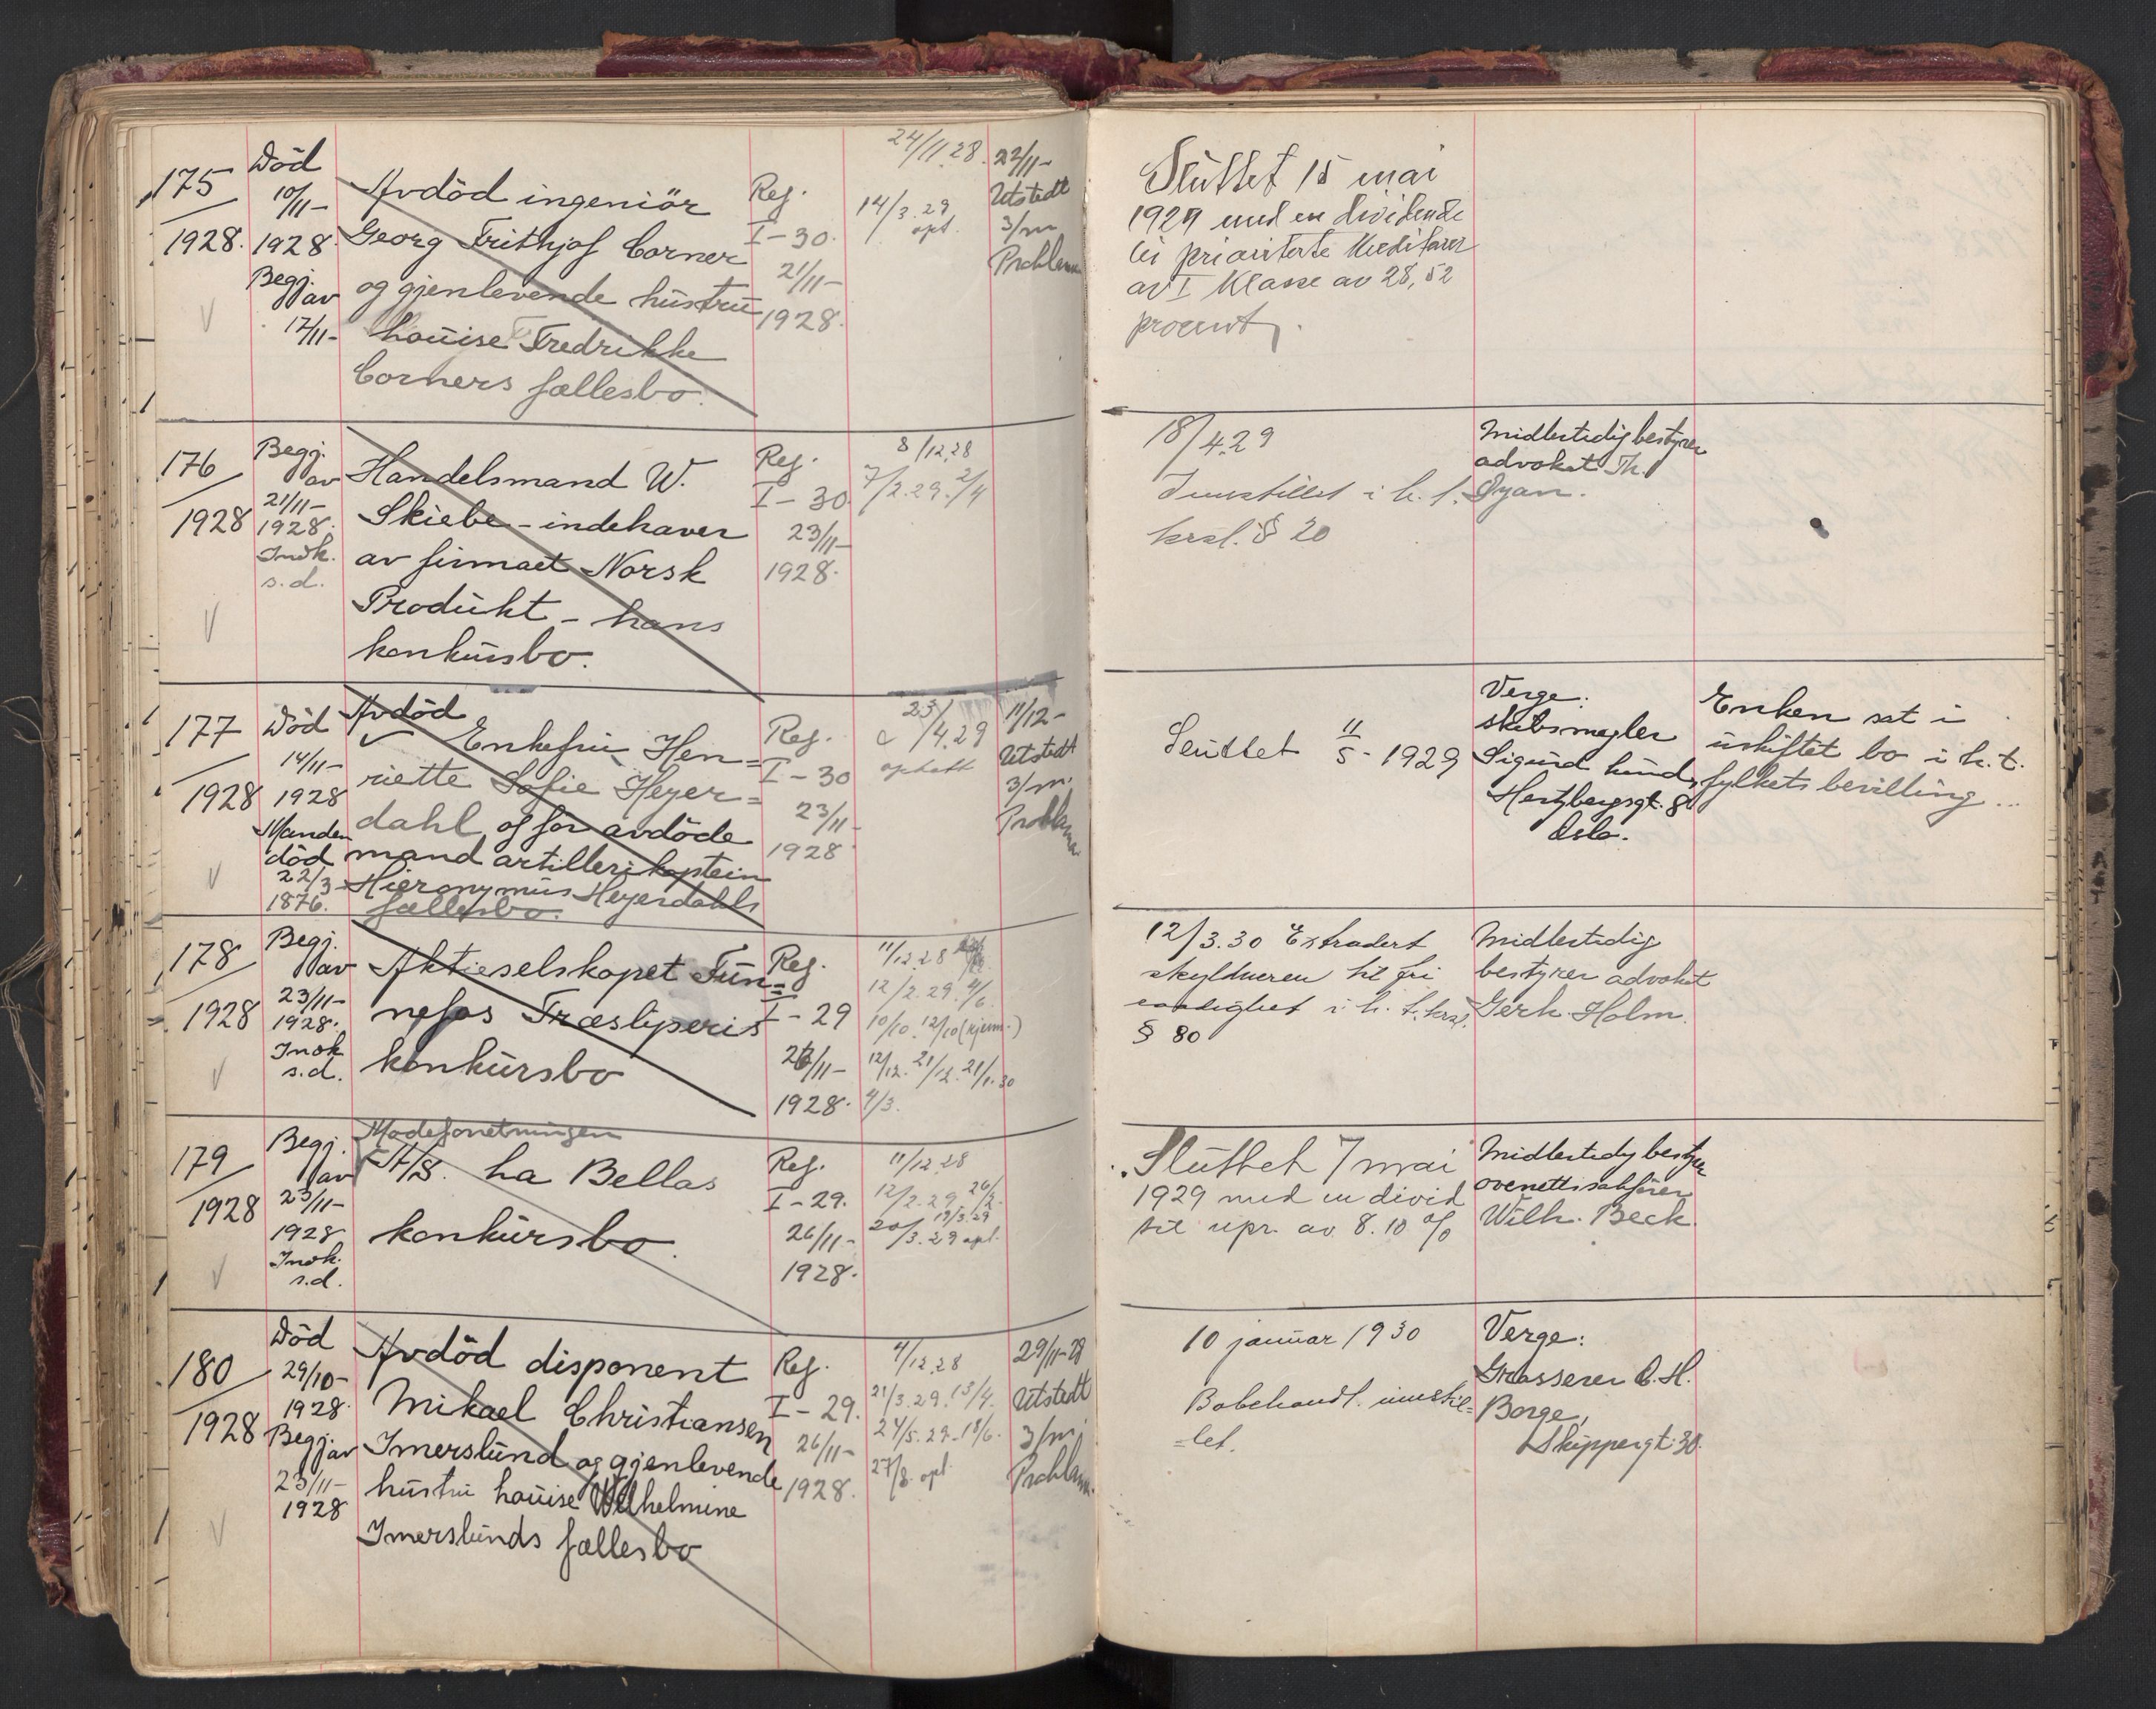 175
1928.
Död
10/11-
1928
Begj.
av
17/11-
Avdöd ingeniör
Georg Frithjof Corner
og gjenlevende hüstrü
Loüise Fredrikke
Corners fællesbo.
Reg.
I-30.
21/11-
1928.
24/11.28.
14/3.29
opt.
22/11-
Utstedt
3/m
Proklama
Slüttet 15 mai
1929 med en dividende
til prioriterte kreditorer
av I Klasse av 28,52
procent.
176
1928
Begj.
av
21/11-
1928.
Indk.
s.d.
Handelsmand W.
Skiebe - indehaver
av firmaet Norsk
Produkt - hans
konkürsbo.
Reg.
I-30.
23/11-
1928.
8/12.28
7/2.29. 2/4
18/4.29
Innstillet i h. t.
krsl. § 20
Midlertidig bestyrer
advokat Th.
Dyan.
177
1928
Död
14/11-
1928
Manden
död
22/3
1876.
Avdöd
Enkefrü Hen=
riette Sofie Heyer=
dahl og för avdöde
mand artillerikaptein
Hieronymüs Heyerdahls
fællesbo.
Reg.
I-30
23/11-
1928
23/4.29
ophatt
11/12-
Utstedt
3/m.
Proklama
Slüttet 11/5-1929
Verge:
skibsmegler
Sigürd Lund,
Hertzbergsgt. 8
Oslo.
Enken sat i
üskiftet bo i h.t.
fylkets bevilling...
178
1928
Begj.
av
23/11-
1928.
Indk
s.d.
Aktieselskapet Fün=
nefos Træsliperis
konkürsbo
Reg.
I-29
26/11-
1928.
11/12.28
12/2.29. 4/6.
10/10. 12/10 (kjenn.)
12/12. 21/12. 21/1.30
4/3.
12/3.30 Extradert
skyldneren til fri
raadighet i h. t. krsl.
§ 80
Midlertidig
bestyrer advokat
Gerh. Holm.
179
1928
Begj.
av
23/11-
1928
Indk.
s.d.
Modeforretningen
A/S. La Bellas
konkürsbo.
Reg.
I-29.
26/11-
1928.
11/12.28
12/2.29. 26/2.
19/3.29
20/3.29 opt.
Slüttet 7 mai
1929 med en divid
til upr. av 8.10 %
Midlertidig bestyrer
overrettssakfører
Wilh. Beck.
180
1928
Död
29/10-
1928
Begj. av
23/11-
1928
Avdöd disponent
Mikael Christiansen
Imerslünd og gjenlevende
hüstrü Loüise Wilhelmine
Imerslünds fællesbo
Reg.
I-29.
26/11-
1928.
4/12.28
21/3.29. 13/4.
24/5.29. 18/6.
27/8. opt.
29/11-28
Utstedt
3/m
Proklama.
10 janüar 1930
Bobehandl. innstil=
=let.
Verge:
Grosserer O. H.
Borge,
Skippergt. 30.